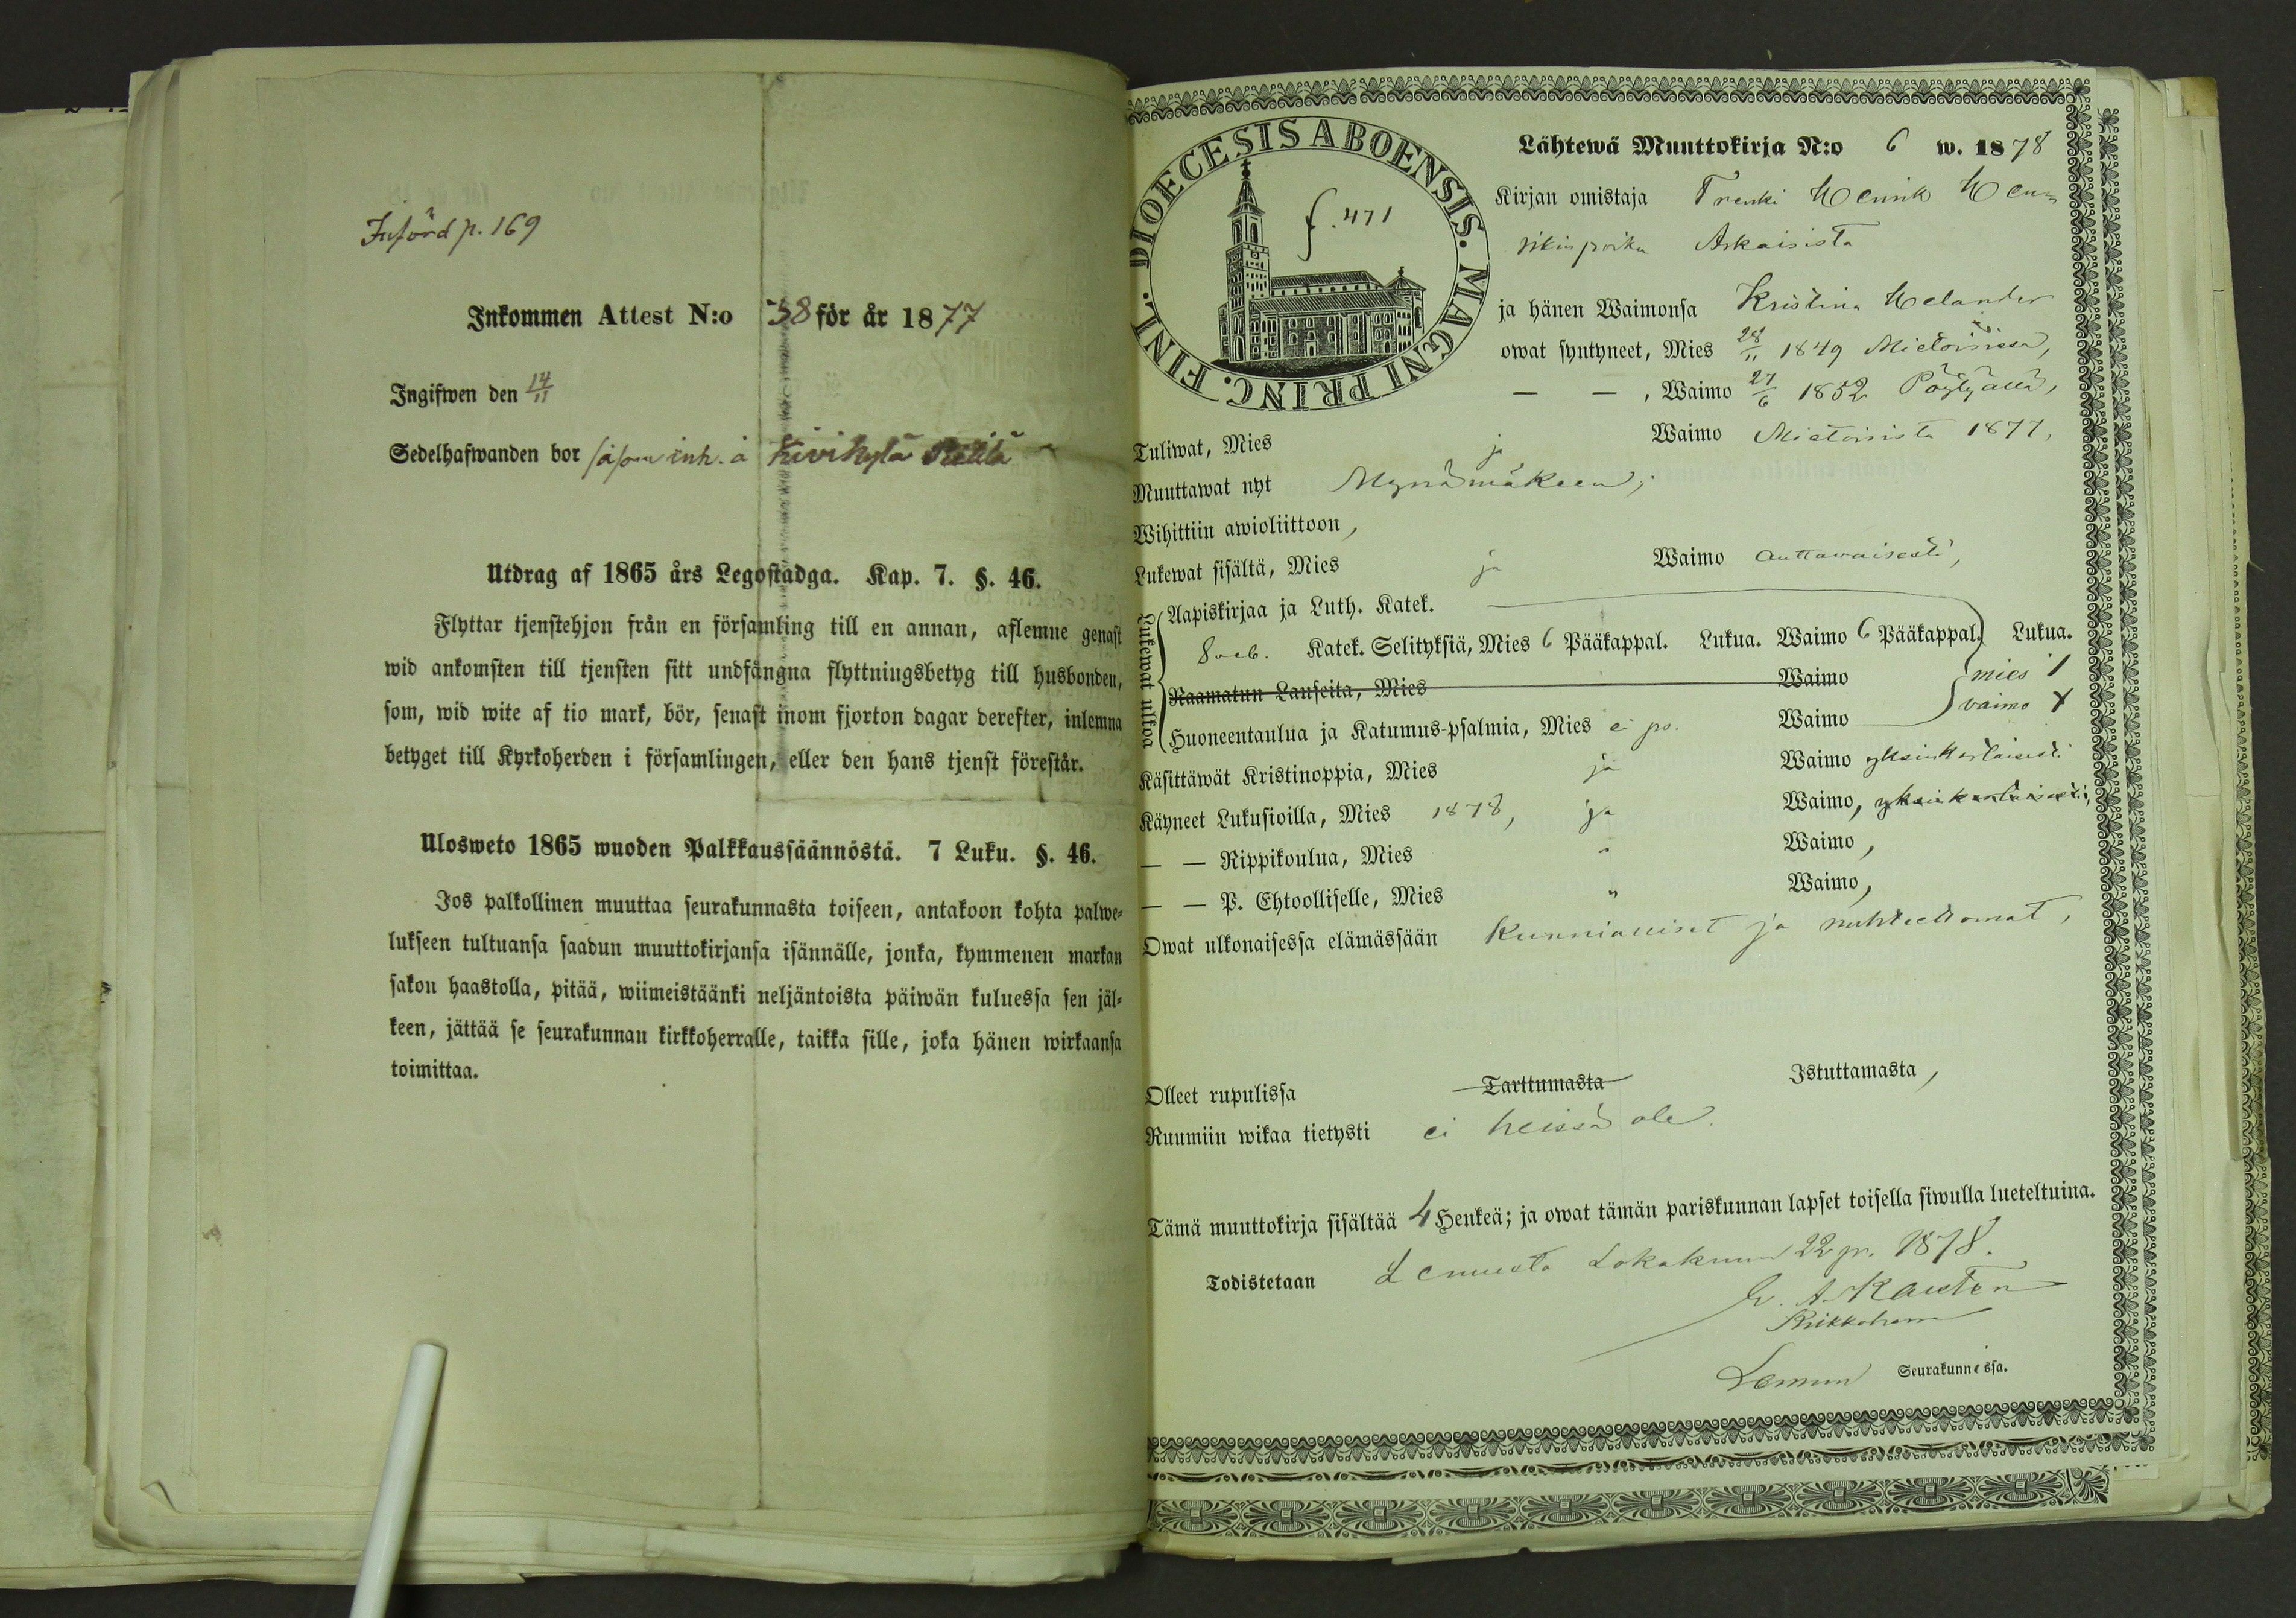 Införd p. 169
Inkommen Attest N:o 38 för år 1877
Ingifwen den 14/11
Sedelhafwanden bor såsom inh. å Kivikylä
Utdrag af 1865 års Legostadga. Kap. 7. §. 46.
Flyttar tjenstehjon från en församling till en annan, aflemne genast
wid ankomsten till tjensten sitt undfångna flyttningsbetyg till husbonden,
som, wid wite af tio mark, bör, senast inom fjorton dagar derefter, inlemna
betyget till Kyrkoherden i församlingen, eller den hans tjenst förestår.
Ulosweto 1865 wuoden Palkkaussäännöstä. 7 Luku. §. 46.
Jos palkollinen muuttaa seurakunnasta toiseen, antakoon kohta palwe-
lukseen tultuansa saadun muuttokirjansa isännälle, jonka, kymmenen markan
sakon haastolla, pitää, wiimeistäänki neljäntoista päiwän kuluessa sen jäl-
keen, jättää se seurakunnan kirkkoherralle, taikka sille, joka hänen wirkaansa
toimittaa.
DIOECESIS ABOENSIS. MAGNI PRINC. FINL.
f. 471
Lähtewä Muuttokirja N:o 6 w. 1878
Kirjan omistaja Trenki Henrik Hen-
rikinpoika Askaisista
ja hänen Waimonsa Kristina Helander
owat syntyneet, Mies 28/11 1849 Mietoisissa,
— — , Waimo 27/6 1852 Pöytyällä,
Tuliwat, Mies ja Waimo Mietoisista 1877,
Muuttawat nyt Mynämäkeen;
Wihittiin awioliittoon,
Lukewat sisältä, Mies ja Waimo auttavaisesti,
Lukewat ulkoa
Aapiskirjaa ja Luth. Katek.
Katek. Selityksiä, Mies 6 Pääkappal. Lukua. Waimo 6 Pääkappal. Lukua.
Raamatun Lauseita, Mies Waimo mies 1
Huoneentaulua ja Katumus-psalmia, Mies ei ps. Waimo vaimo
Käsittäwät Kristinoppia, Mies ja Waimo yksinkertaisesti
Käyneet Lukusioilla, Mies 1878, ja Waimo, yksinkertaisesti,
— — Rippikoulua, Mies " Waimo,
— — P. Ehtoolliselle, Mies " Waimo,
Owat ulkonaisessa elämässään Kunnialliset ja nuhteettomat,
Olleet rupulissa Tarttumasta Istuttamasta,
Ruumiin wikaa tietysti ei heissä ole.
Tämä muuttokirja sisältää 4 Henkeä; ja owat tämän pariskunnan lapset toisella siwulla lueteltuina.
Todistetaan Lemusta Lokakuun 22 p. 1878.
A. Karsten
Kirkkoherra
Lemun Seurakunnassa.